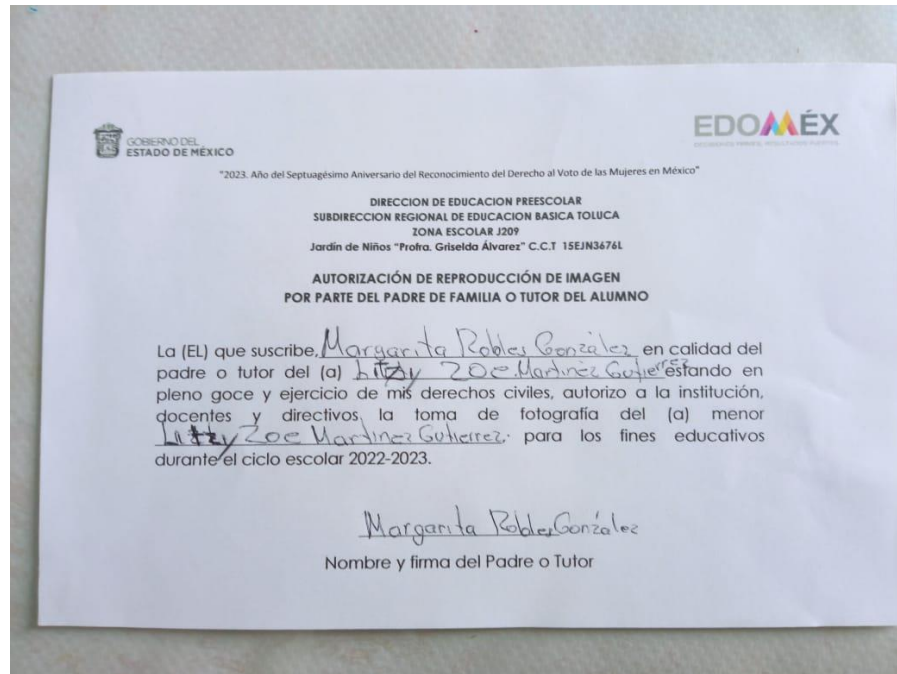 GOBIERNO DEL
ESTADO DE MÉXICO
EDOMÉX
"2023. Año del Septuagésimo Aniversario del Reconocimiento del Derecho al Voto de las Mujeres en México"
DIRECCION DE EDUCACION PREESCOLAR
SUBDIRECCION REGIONAL DE EDUCACION BASICA TOLUCA
ZONA ESCOLAR J209
Jardín de Niños "Profra. Griselda Álvarez" C.C.T 15EJN3676L
AUTORIZACIÓN DE REPRODUCCIÓN DE IMAGEN
POR PARTE DEL PADRE DE FAMILIA O TUTOR DEL ALUMNO
La (EL) que suscribe, Margarita Robles González en calidad del
padre o tutor del (a) Litzy Zoe Martinez Gutierrez estando en
pleno goce y ejercicio de mis derechos civiles, autorizo a la institución,
docentes y directivos la toma de fotografía del (a) menor
Litzy Zoe Martinez Gutierrez, para los fines educativos
durante el ciclo escolar 2022-2023.
Margarita Robles González
Nombre y firma del Padre o Tutor